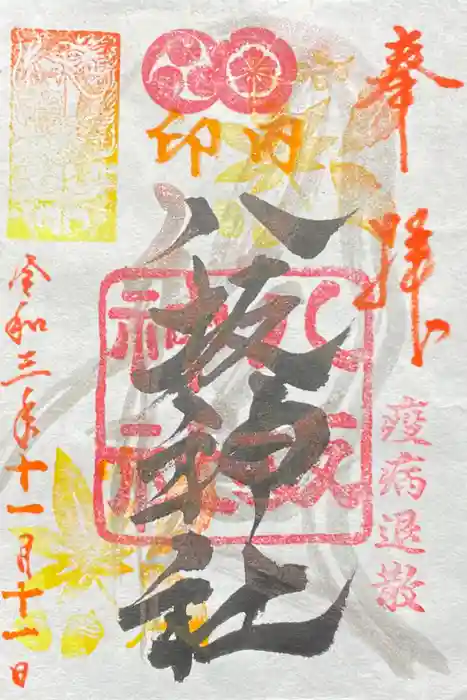 奉拝
疫病退散
印内
八坂神社
八坂
神社
令和三年十一月十一日